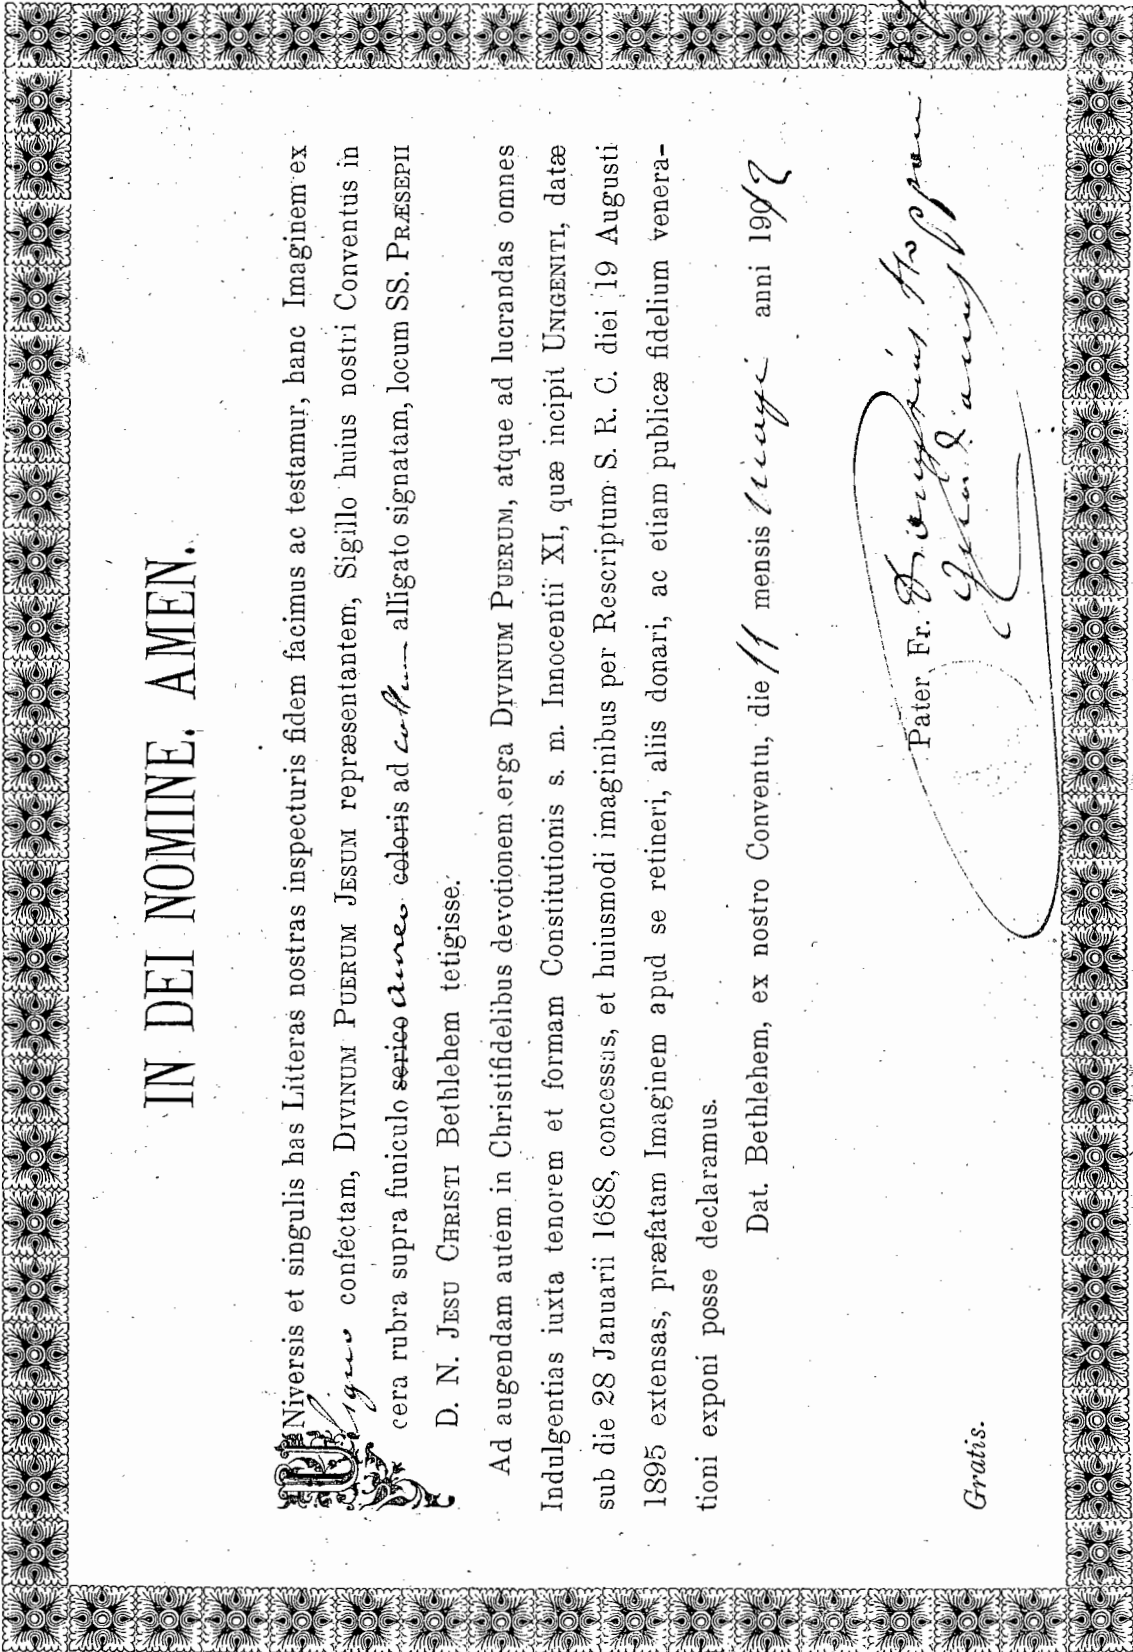 IN DEI NOMINE. AMEN.
UNiversis et singulis has Litteras nostras inspecturis fidem facimus ac testamur, hanc Imaginem ex
ligno confectam, DIVINUM PUERUM JESUM repræsentantem, Sigillo huius nostri Conventus in
cera rubra supra funiculo serico aureo coloris ad collum alligato signatam, locum SS. PRÆSEPII
D. N. JESU CHRISTI Bethlehem tetigisse.
Ad augendam autem in Christifidelibus devotionem erga DIVINUM PUERUM, atque ad lucrandas omnes
Indulgentias iuxta tenorem et formam Constitutionis s. m. Innocentii XI, quæ incipit UNIGENITI, datæ
sub die 28 Januarii 1688, concessas, et huiusmodi imaginibus per Rescriptum S. R. C. diei 19 Augusti
1895 extensas, præfatam Imaginem apud se retineri, aliis donari, ac etiam publicæ fidelium venera-
tioni exponi posse declaramus.
Dat. Bethlehem, ex nostro Conventu, die 11 mensis anni 19
Pater Fr.
Gratis.